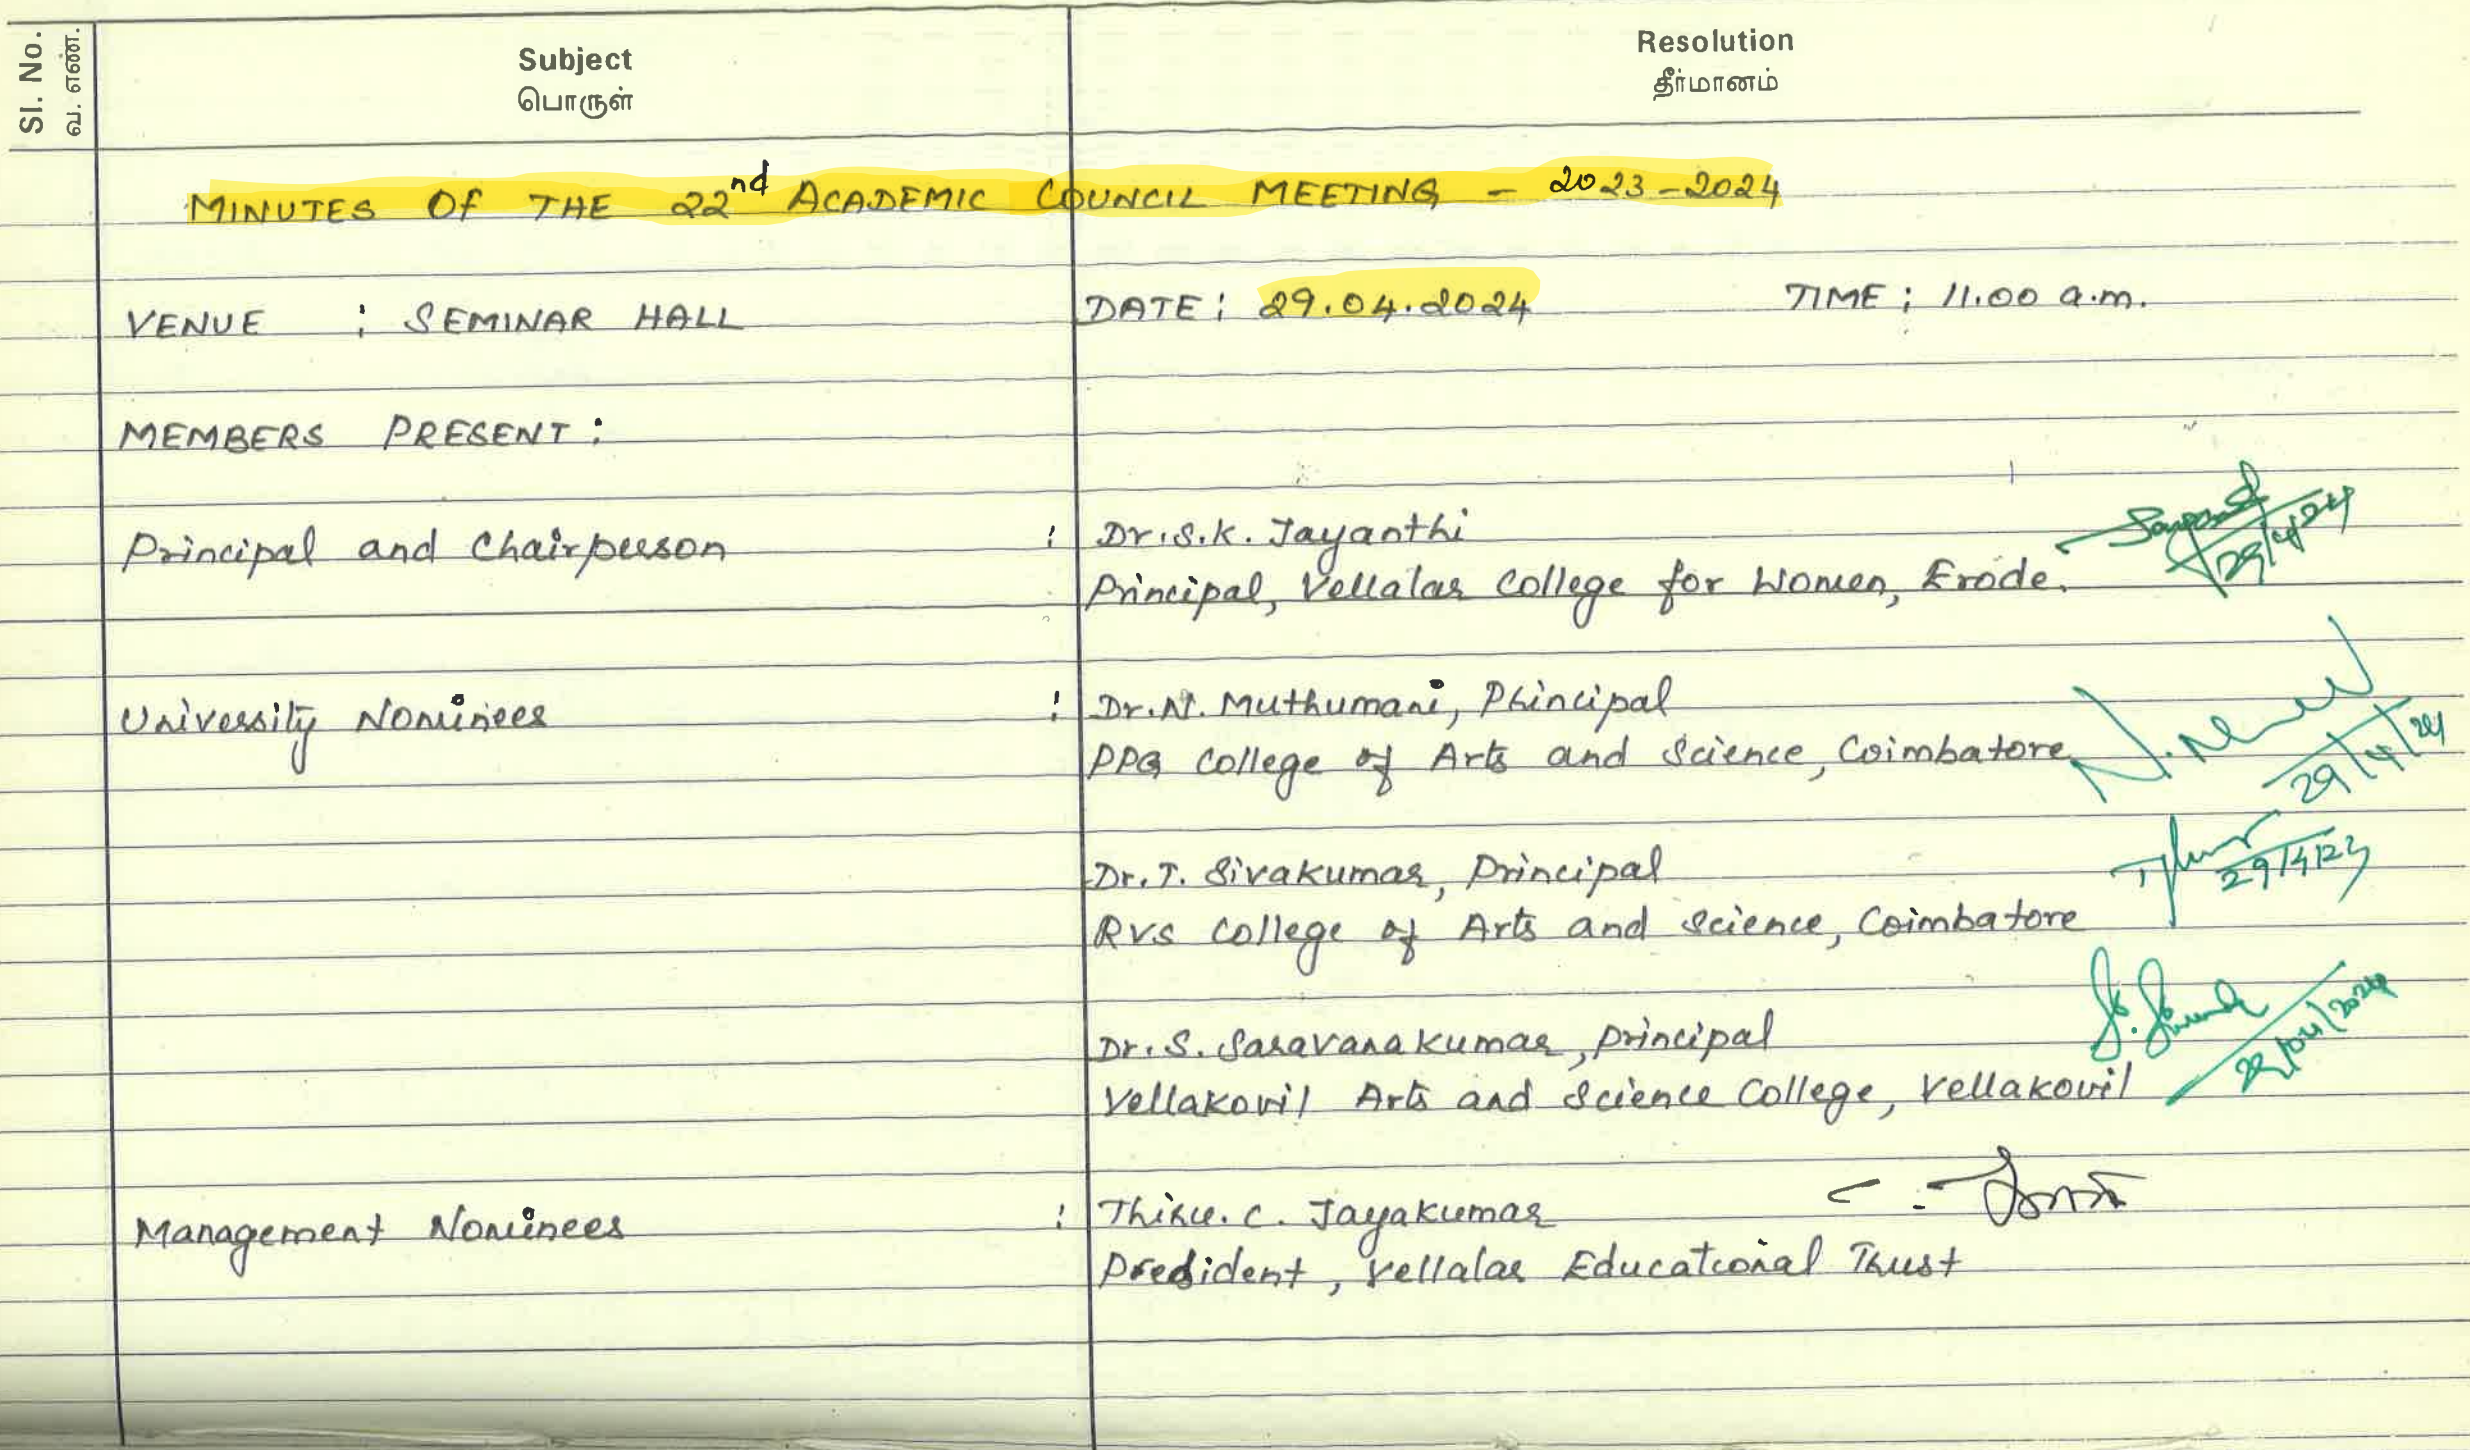 Sl. No.
வ. எண்.
Subject
பொருள்
Resolution
தீர்மானம்
MINUTES OF THE 22nd ACADEMIC COUNCIL MEETING - 2023-2024
VENUE : SEMINAR HALL DATE: 29.04.2024 TIME: 11.00 a.m.
MEMBERS PRESENT:
Principal and Chairperson : Dr.S.K. Jayanthi
Principal, Vellalar College for Women, Erode.
29/4/24
University Nominees : Dr.N. Muthumani, Principal
PPG College of Arts and Science, Coimbatore
29/4/24
Dr.T. Sivakumar, Principal
29/4/23
RVS College of Arts and Science, Coimbatore
Dr.S. Saravanakumar, Principal
29/04/2024
Vellakovil Arts and Science College, Vellakovil
Management Nominees : Thiru.C. Jayakumar
President, Vellalar Educational Trust